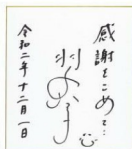 感謝をこめて…
令和二年十二月一日